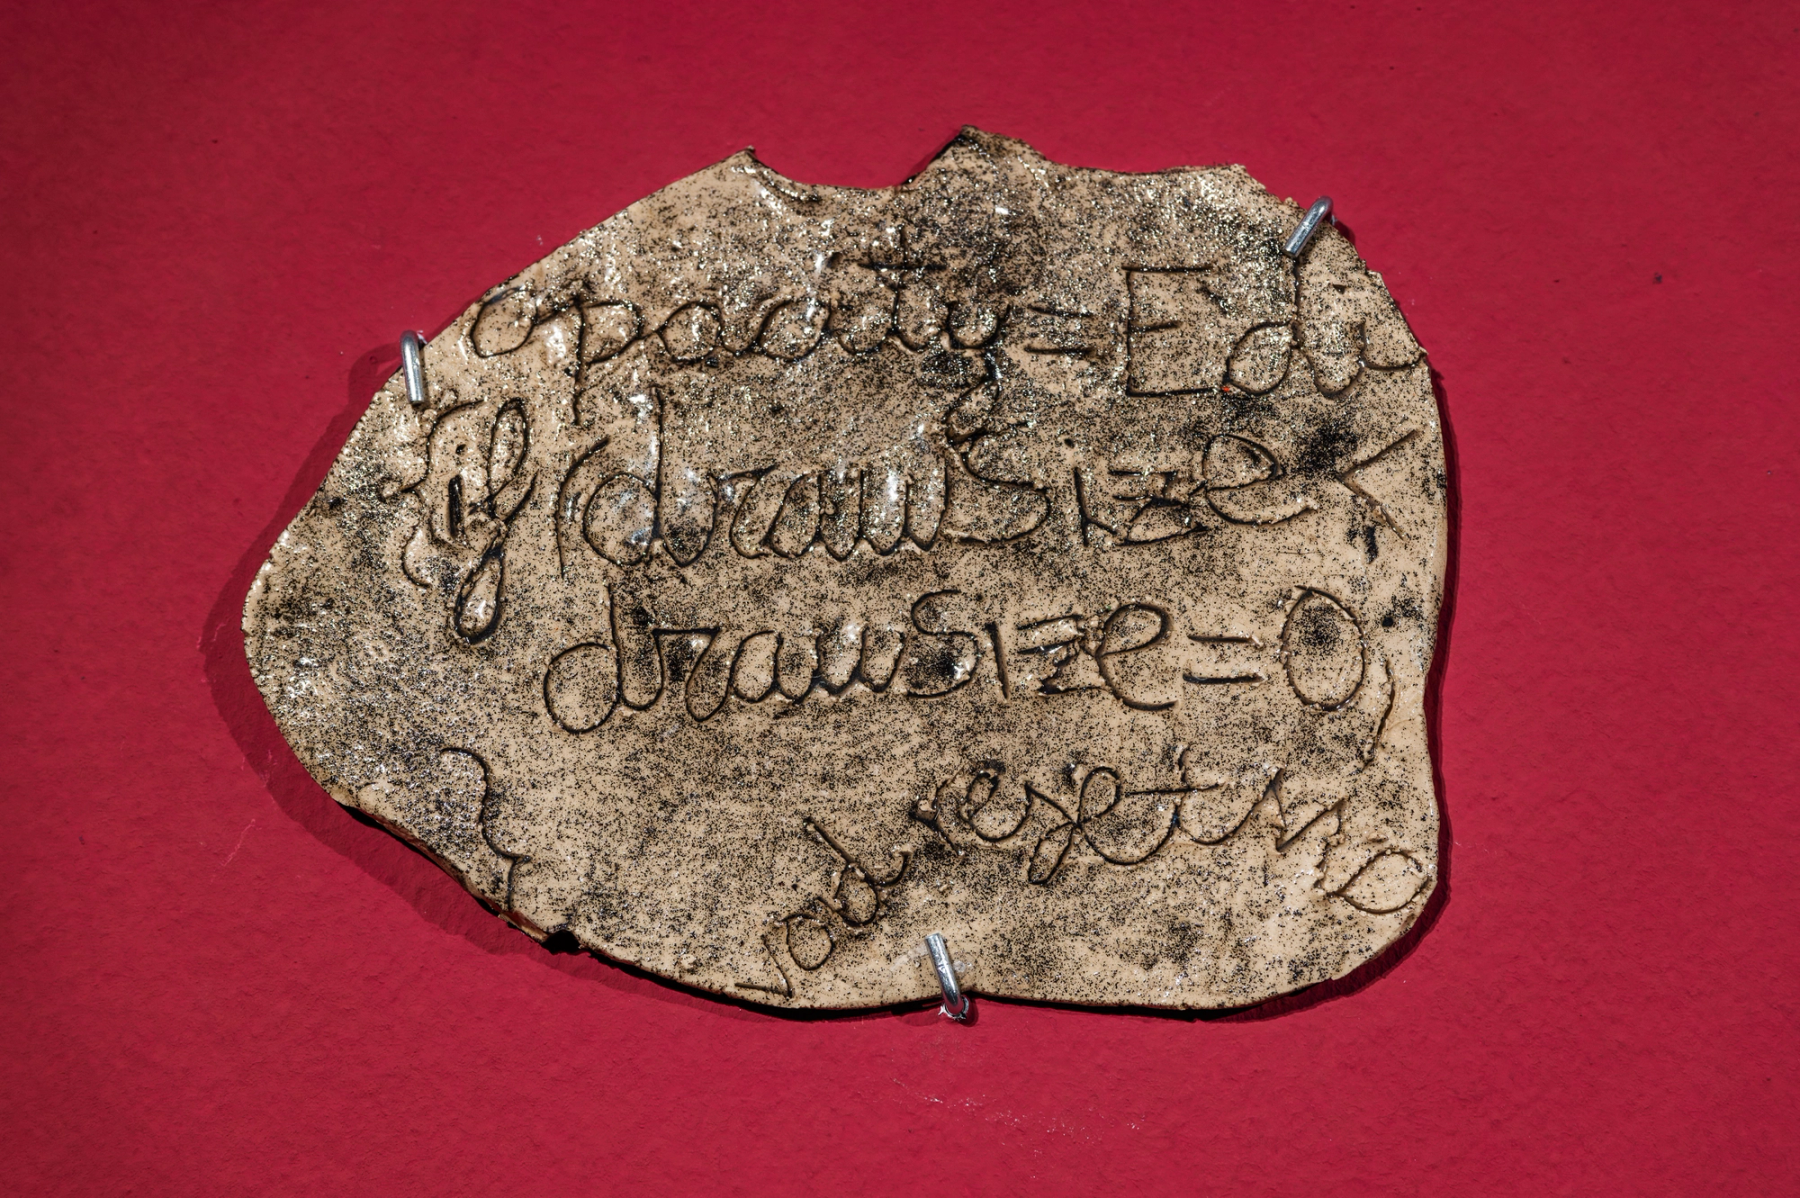 opacity = Edi
if (drawSize <
drawSize = 0;
}
void resetIn